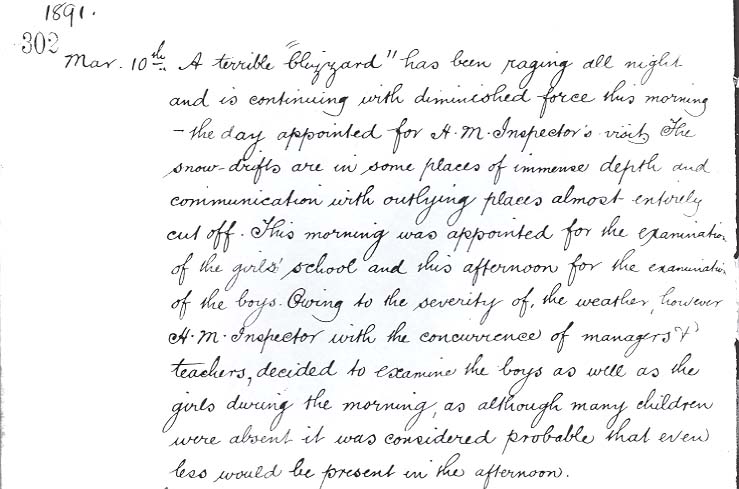 1891.
302
Mar. 10th. A terrible "blizzard" has been raging all night
and is continuing with diminished force this morning
- the day appointed for H.M. Inspector's visit. The
snow-drifts are in some places of immense depth and
communication with outlying places almost entirely
cut off. This morning was appointed for the examination
of the girls' school and this afternoon for the examination
of the boys. Owing to the severity of, the weather, however
H.M. Inspector with the concurrence of managers &
teachers, decided to examine the boys as well as the
girls during the morning, as although many children
were absent it was considered probable that even
less would be present in the afternoon.